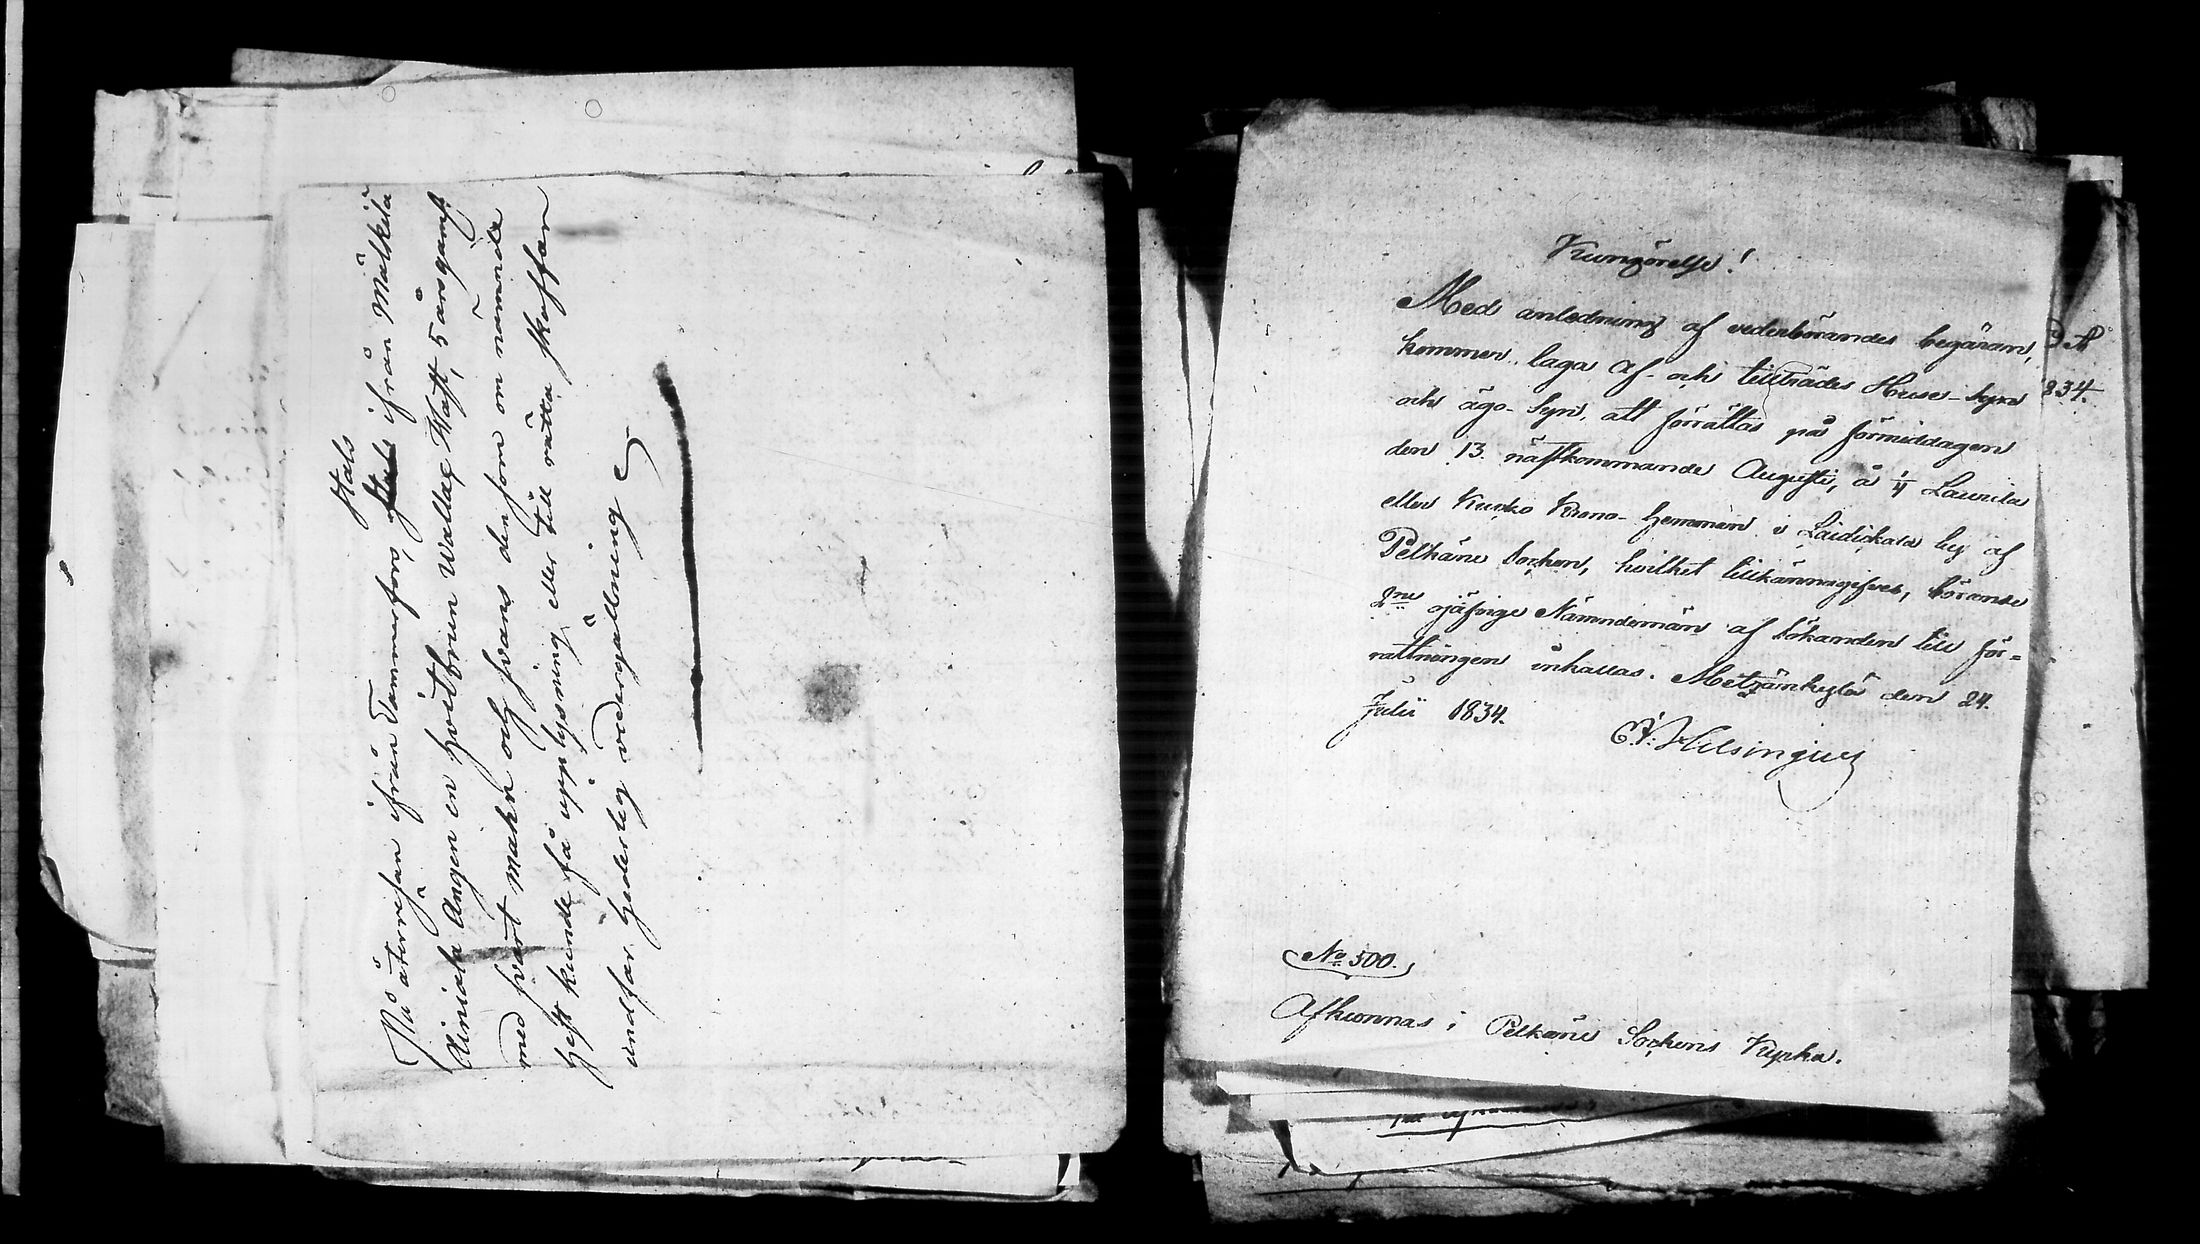 Stals
På återresan ifrån Tammerfors, ifrån Mälkilä
Ängen en hvitbrun Wallax Häst, 5 år gammal
med svart mahn och svans den som om nämnde
hest kunde få upplysning eller till rätta skaffar
undfår hederlig vedergällning
Kungörelse!
Med anledning af vederbörandes begäran,
kommer laga af- och tillträdes Huse-Syn
och ägo-Syn, att förrättas på förmiddagen
den 13. nästkommande Augusti, å 1/4 Laurila
eller Kuoko Krono-hemman i Laidickala by af
Pelkäne Sochen, hvilket tillkännagifves, börande
2ne ojäfvige Nämndemän af Sökanden till för=
rättningen inkallas. den 24.
Julii 1834.
Helsingius
No 500.
Afkunnas i Pelkäne Sochens Kyrka.
834.